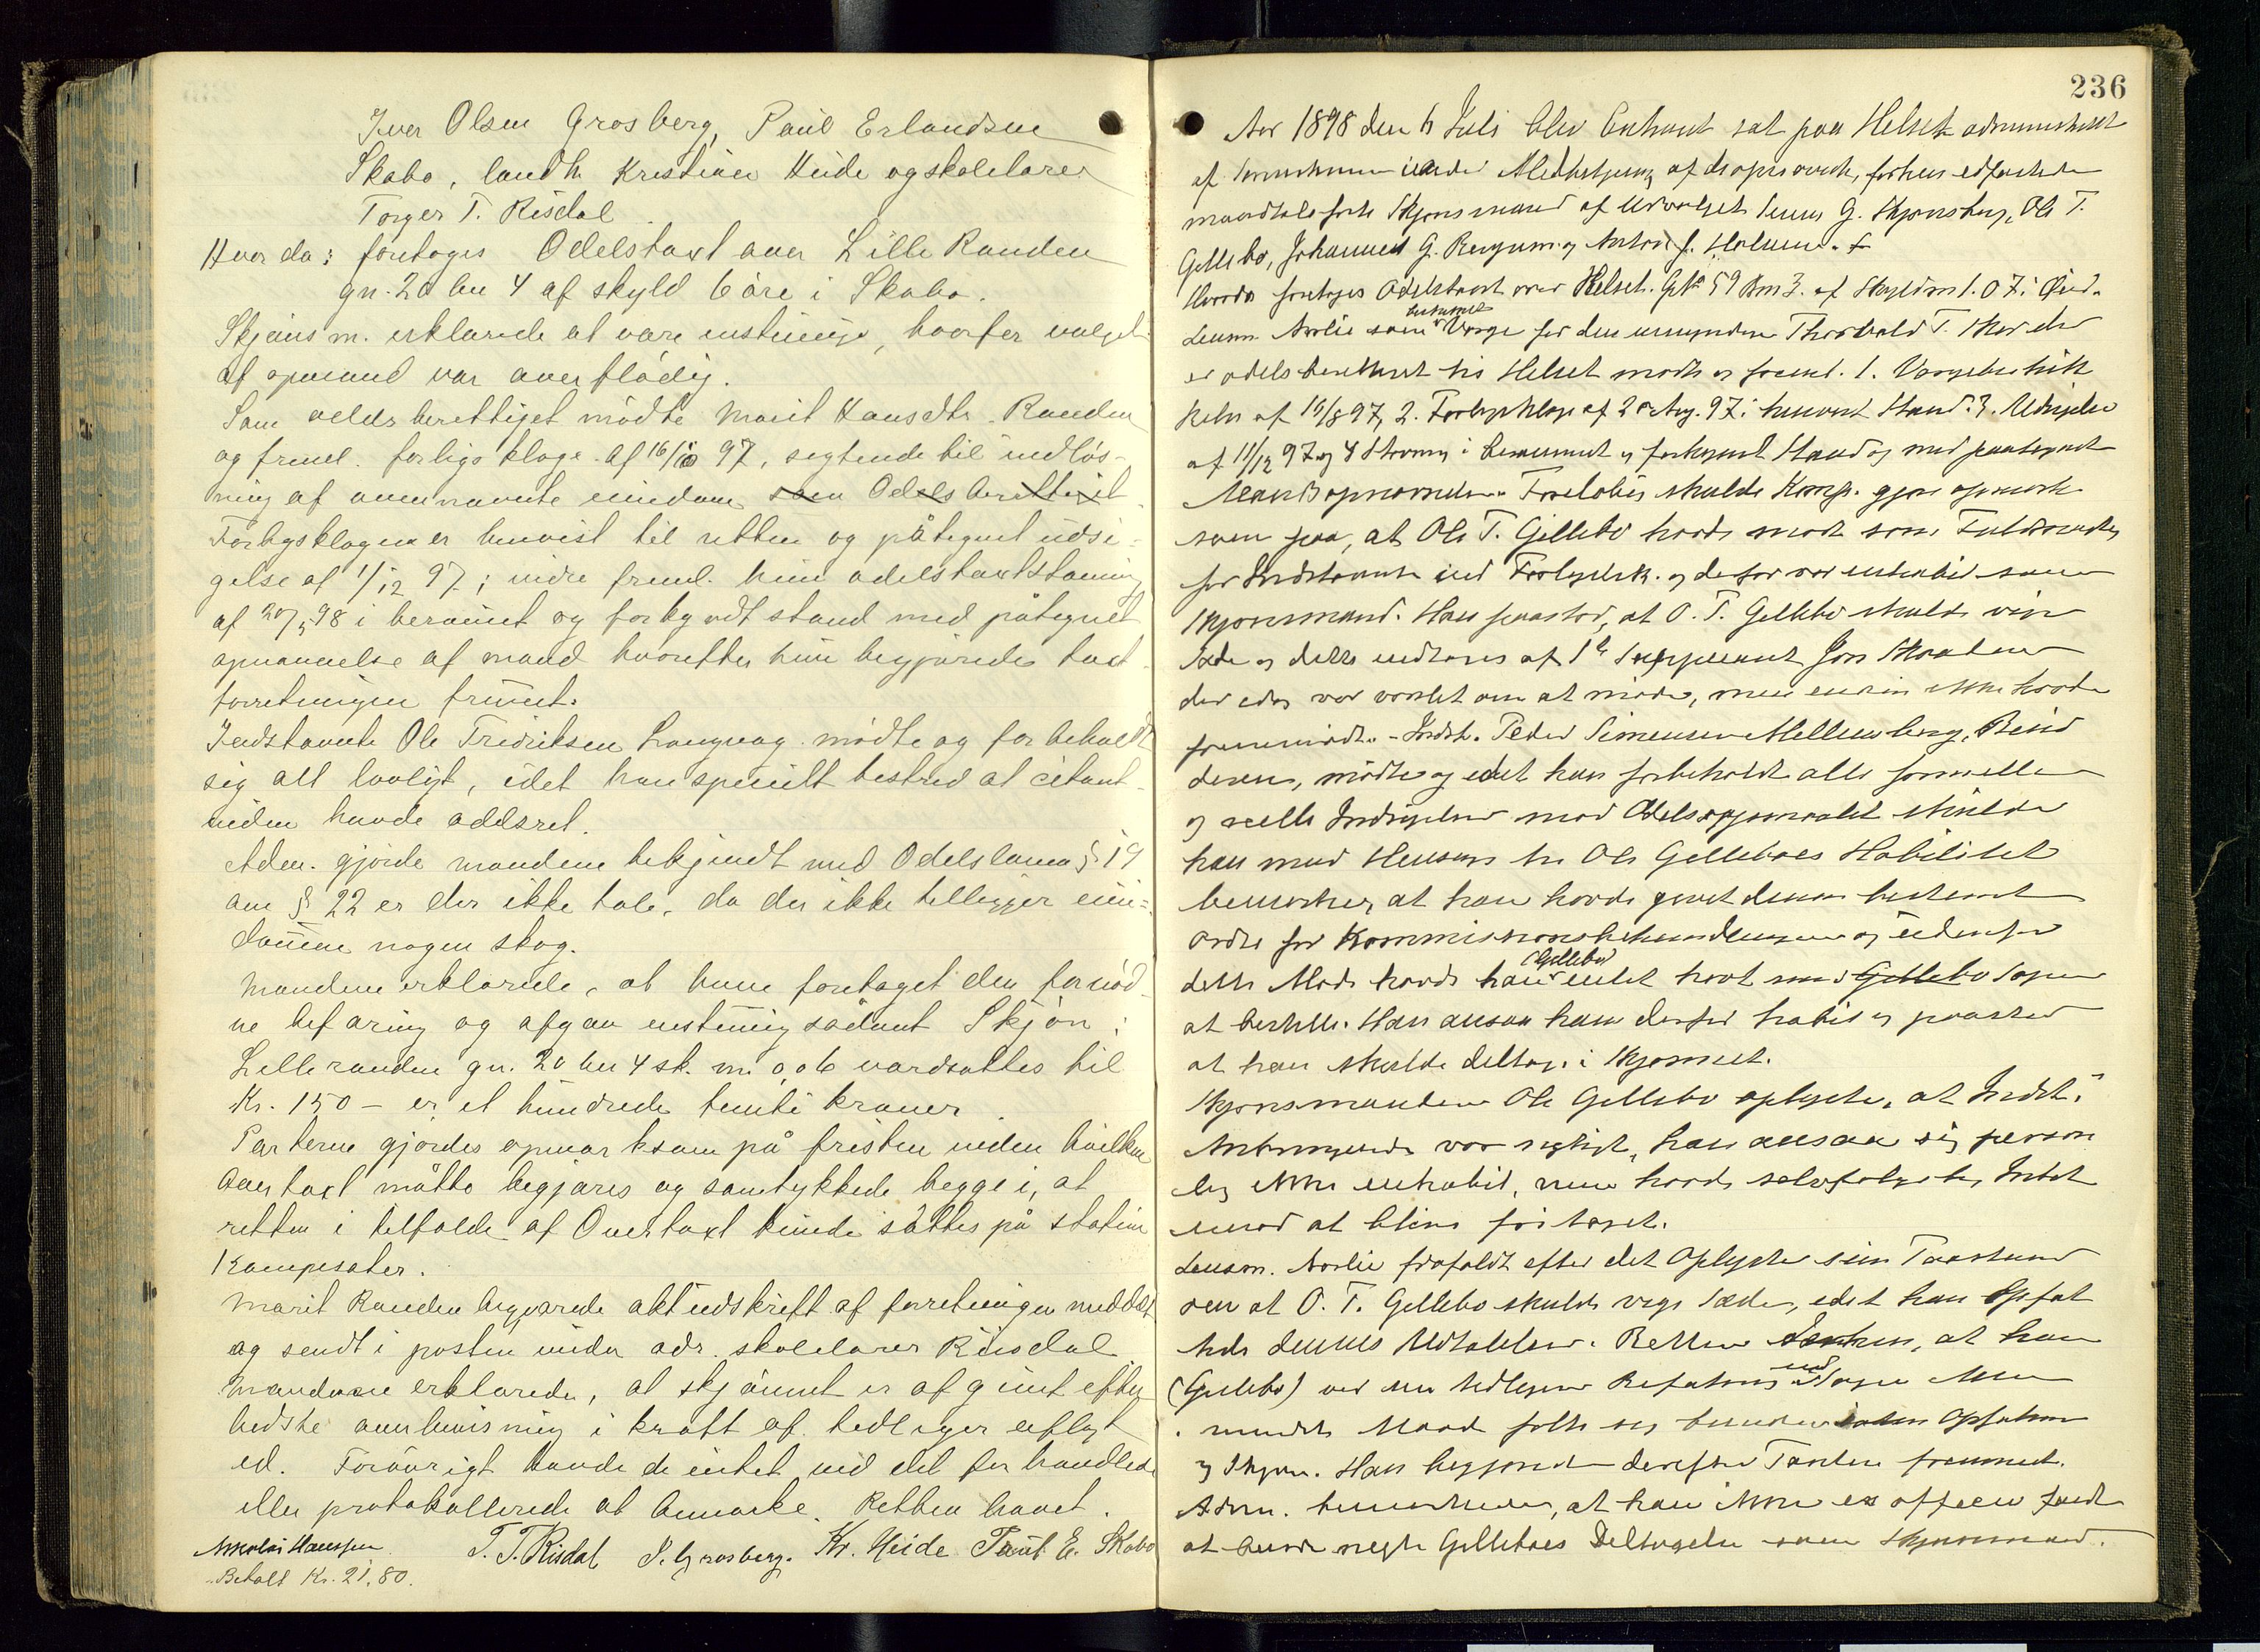 Iver Olsen Grosberg, Paul Erlandsen
Skabo, landh. Kristian Heide og skolelærer
Torger T. Risdal
Hvorda: foretoges Odelstaxt over Lille Randen
gn. 20 bn 4 af skyld 6 øre i Skabo.
Skjønsm. erklærede at være enstemmige, hvorfor valget
af opmand var overflødig.
Som odelsberettiget mødte Marit Hansdtr. Randen
og freml. forligsklage af 16/10 97, sigtende til indløs-
ning af ovennævnte eiendom som Odelsberettiget
Forligsklagen er henvist til retten og påtegnet udsi-
gelse af 1/12 97; videre freml. hun odelstaxtstævning
af 20/5 98 i beramet og forkyndt stand med påtegnet
opnævnelse af mænd hvorefter hun begjærede taxt-
forretningen fremmet.
Indstævnte Ole Fredriksen Langvag mødte og forbeholdt
sig alt lovligt, idet han specielt bestred at citant-
inden havde oddsret.
Adm. gjorde mændene bekjendt med Odelsloven § 19
om § 22 er der ikke tale, da der ikke tilligger eien-
dommen nogen skog.
Mændene erklærede, at have foretaget den fornød-
ne befaring og afgav enstemmig sådant Skjøn:
Lilleranden gn. 20 bn 4 sk. m. 0.06 værdsattes til
Kr. 150 – er et hundrede femti kroner.
Parterne gjordes opmærksom på fristen inden hvilken
Overtaxt måtte begjæres og samtykkede begge i, at
retten i tilfælde af Overtaxt kunde sættes på station
Kampesæter.
Marit Randen begjærede aktudskrift af forretningen meddelt
og sendt i posten under adr. skolelærer Risdal
Mændene erklærede, at skjønnet er afgivet efter
bedste overbevisning i kraft af tidligere aflagt
ed. Forøvrigt havde de intet ved det forhandlede
eller protokollerede at bemærke. Retten hævet.
Nikolai Hanssen T. T. Risdal I. Grosberg. Kr. Heide Paul E. Skabo
Betalt Kr. 21.80.
236
Aar 1898 den 6 Juli blev Extraret sat paa Helset administreret
af Sorenskriveren under Medbetjening af de opnævnte, forhen edfæstede
mandtalsførte Skjønsmænd af Udvalget Simen G. Skjønsberg, Ole T.
Gillebo, Johannes G. Rugum og Anton J. Holmen.
Hvorda foretoges Odelstaxt over Helset. Gn 59 Bn 3. af Skyldm 1.07 i Øier.
Lensm. Norlie som beskikket Værge for den umyndige Thorvald T. der
er odelsberettiget til Helset mødte og freml. 1. Værgebeskik-
kelse af 16/8 97, 2. Forligsklage af 20 Aug. 97 i henvist Stand. 3. Udsigelse
af 11/12 97 og 4 Stævning i berammet og forkyndt Stand og med paategnet
Mandsopnævnelse. Foreløbig skulde Komp. gjøre opmærk-
som paa, at Ole T. Gillebo havde mødt som Fuldmægtig
for Indstævnte ved Forligelsk. og derfor var inhabil som
Skjønsmand. Han paastod, at O. T. Gillebo skulde vige
Sæde og dette indtages af 1ste Suppleant Jon
der idag var varslet om at møde, men endnu ikke havde
fremmødt. – Indst. Peder Simensen Mellemberg,
mødte og idet han forbeholdt alle formelle
og reelle Indsigelser mod Odelssøgsmaalet skulde
han med Hensyn til Ole Gilleboes Habilitet
bemærke, at han havde givet denne bestemt
Ordre for Kommissionsbehandlingen og udenfor
dette Møde havde han (Gillebo) intet havt med Gillebo Sagen
at bestille. Han ansaa ham derfor habil og paastod
at han skulde deltage i Skjønnet.
Skjønsmanden Ole Gillebo oplyste, at Indst.s
Anbringende var rigtigt, han ansaa sig person-
lig ikke inhabil, men havde selvfølgelig Intet
imod at blive fritaget.
Lensm. Norlie frafaldt efter det Oplyste sin Paastand
om at O. T. Gillebo skulde vige Sæde, idet han opfat-
tede dennes Udtalelser. Retten, at han
(Gillebo) ved sin tidligere Befatning med Sagen ikke
i mindste Maade følte sig bunden i sin Opfatning
og Skjøn. Han begjærede derefter Taxten fremmet.
Adm. bemærkede, at han ikke ex officio fandt
at burde negte Gilleboes Deltagelse som Skjønsmand.